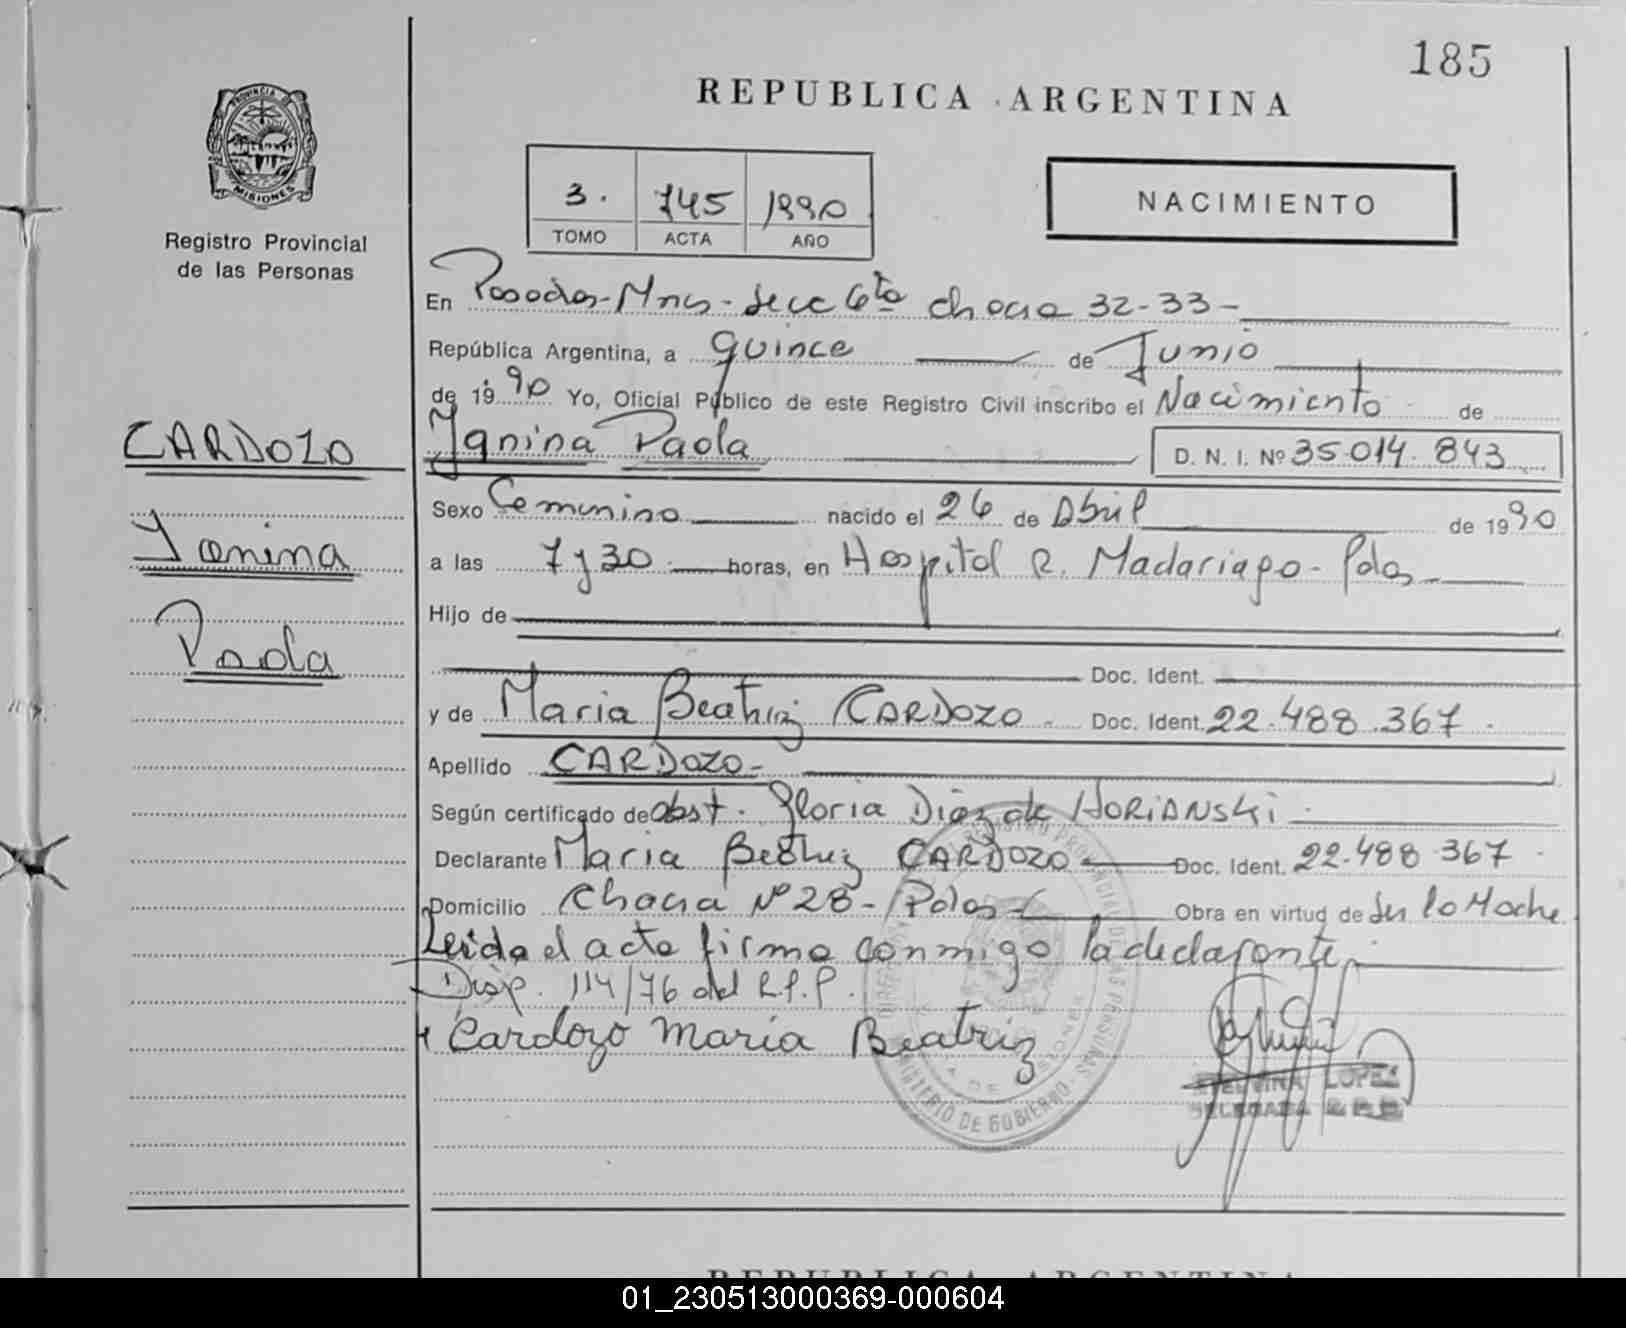 185
REPUBLICA ARGENTINA
PROVINCIA DE
MISIONES
Registro Provincial
de las Personas
3. 745 1990
TOMO ACTA AÑO
NACIMIENTO
En Posadas-Mnes-Secc 6ta chacra 32-33-
República Argentina, a quince de Junio
de 1990 Yo, Oficial Público de este Registro Civil inscribo el Nacimiento de
CARDOZO
Yanina Paola D. N. I. Nº 35.014.843
Sexo Femenino nacido el 26 de Abril de 1990
Yanina
a las 7 y 30 horas, en Hospital R. Madariaga-Pdas
Hijo de
Paola
Doc. Ident.
y de Maria Beatriz CARDOZO Doc. Ident. 22.488.367.
Apellido CARDOZO-
Según certificado de obst. Gloria Diaz de HORIANSKI
Declarante Maria Beatriz CARDOZO Doc. Ident. 22.488.367
Domicilio Chacra Nº 28-Pdas- Obra en virtud de Ser la Madre
Leida el acta firma conmigo la declarante.
Disp. 114/76 del R.P.P.
Cardozo Maria Beatriz
LOPEZ
DELEGADA R.P.P.
MINISTERIO DE GOBIERNO
REPUBLICA ARGENTINA
01_230513000369-000604